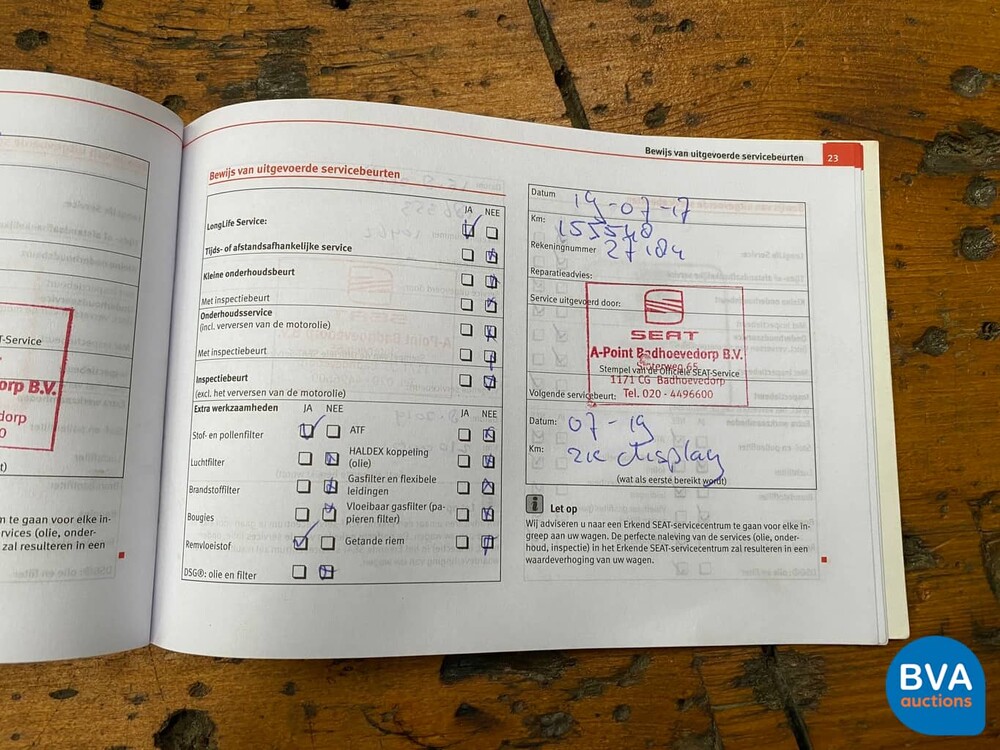 T-Service
orp B.V.
dorp
0
t)
m te gaan voor elke in-
rvices (olie, onder-
zal resulteren in een
Bewijs van uitgevoerde servicebeurten
23
Bewijs van uitgevoerde servicebeurten
JA NEE
LongLife Service:
Tijds- of afstandsafhankelijke service
Kleine onderhoudsbeurt
Met inspectiebeurt
Onderhoudsservice
(incl. verversen van de motorolie)
Met inspectiebeurt
Inspectiebeurt
(excl. het verversen van de motorolie)
Extra werkzaamheden JA NEE JA NEE
Stof- en pollenfilter ATF
Luchtfilter HALDEX koppeling
(olie)
Brandstoffilter Gasfilter en flexibele
leidingen
Bougies Vloeibaar gasfilter (pa-
pieren filter)
Remvloeistof Getande riem
DSG®: olie en filter
Datum 19-07-17
Km: 155548
Rekeningnummer 27184
Reparatieadvies:
Service uitgevoerd door:
SEAT
A-Point Badhoevedorp B.V.
Sloterweg 65
Stempel van de Officiële SEAT-Service
1171 CG Badhoevedorp
Volgende servicebeurt: Tel. 020 - 4496600
Datum: 07-19
Km: zie display
(wat als eerste bereikt wordt)
i Let op
Wij adviseren u naar een Erkend SEAT-servicecentrum te gaan voor elke in-
greep aan uw wagen. De perfecte naleving van de services (olie, onder-
houd, inspectie) in het Erkende SEAT-servicecentrum zal resulteren in een
waardeverhoging van uw wagen.
BVA
auctions